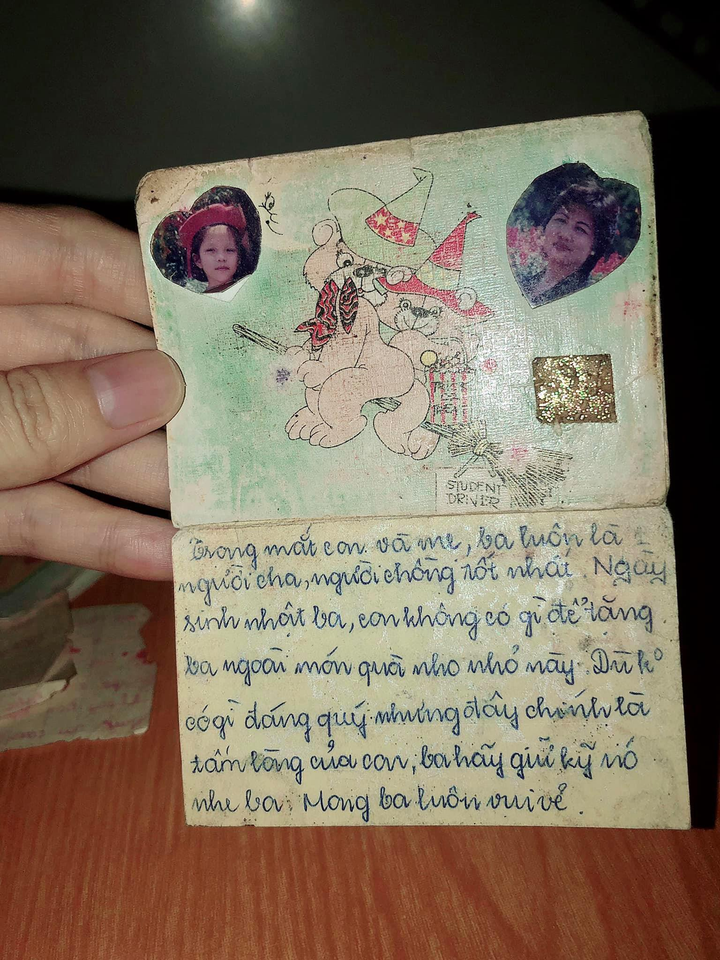 STUDENT
DRIVER
Trong mắt con và mẹ, ba luôn là 1
người cha, người chồng tốt nhất. Ngày
sinh nhật ba, con không có gì để tặng
ba ngoài món quà nho nhỏ này. Dù ko
có gì đáng quý nhưng đây chính là
tấm lòng của con, ba hãy giữ kỹ nó
nhe ba. Mong ba luôn vui vẻ.